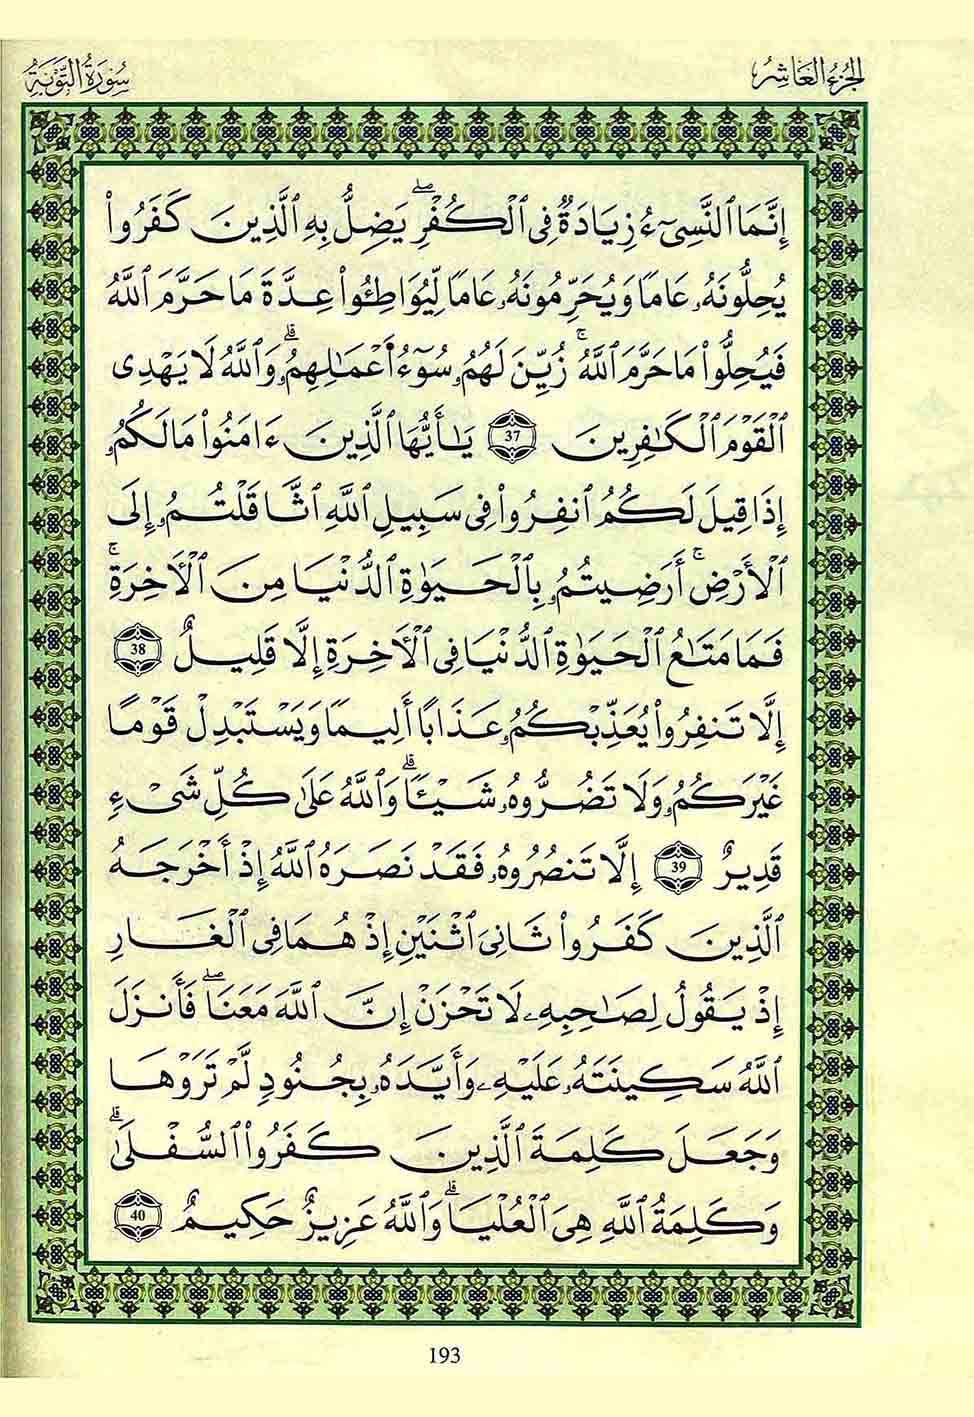 الجزء العاشر
سورة التوبة
إِنَّمَا ٱلنَّسِىٓءُ زِيَادَةٌ فِى ٱلْكُفْرِ ۖ يَضِلُّ بِهِ ٱلَّذِينَ كَفَرُوا۟
يُحِلُّونَهُۥ عَامًا وَيُحَرِّمُونَهُۥ عَامًا لِّيُوَاطِـُٔوا۟ عِدَّةَ مَا حَرَّمَ ٱللَّهُ
فَيُحِلُّوا۟ مَا حَرَّمَ ٱللَّهُ ۚ زُيِّنَ لَهُمُۥ سُوٓءُ أَعْمَـٰلِهِمُۥ ۗ وَٱللَّهُ لَا يَهْدِى
ٱلْقَوْمَ ٱلْكَـٰفِرِينَ 37 يَـٰٓأَيُّهَا ٱلَّذِينَ ءَامَنُوا۟ مَا لَكُمُۥ
إِذَا قِيلَ لَكُمُ ٱنفِرُوا۟ فِى سَبِيلِ ٱللَّهِ ٱثَّاقَلْتُمُۥ إِلَى
ٱلْأَرْضِ ۚ أَرَضِيتُمُۥ بِٱلْحَيَوٰةِ ٱلدُّنْيَا مِنَ ٱلْأَخِرَةِ ۚ
فَمَا مَتَـٰعُ ٱلْحَيَوٰةِ ٱلدُّنْيَا فِى ٱلْأَخِرَةِ إِلَّا قَلِيلٌ 38
إِلَّا تَنفِرُوا۟ يُعَذِّبْكُمُۥ عَذَابًا أَلِيمًا وَيَسْتَبْدِلْ قَوْمًا
غَيْرَكُمُۥ وَلَا تَضُرُّوهُۥ شَيْـًٔا ۗ وَٱللَّهُ عَلَىٰ كُلِّ شَىْءٍ
قَدِيرٌ 39 إِلَّا تَنصُرُوهُۥ فَقَدْ نَصَرَهُ ٱللَّهُ إِذْ أَخْرَجَهُ
ٱلَّذِينَ كَفَرُوا۟ ثَانِىَ ٱثْنَيْنِ إِذْ هُمَا فِى ٱلْغَارِ
إِذْ يَقُولُ لِصَـٰحِبِهِۦ لَا تَحْزَنْ إِنَّ ٱللَّهَ مَعَنَا ۖ فَأَنزَلَ
ٱللَّهُ سَكِينَتَهُۥ عَلَيْهِۦ وَأَيَّدَهُۥ بِجُنُودٍ لَّمْ تَرَوْهَا
وَجَعَلَ كَلِمَةَ ٱلَّذِينَ كَفَرُوا۟ ٱلسُّفْلَىٰ ۗ
وَكَلِمَةُ ٱللَّهِ هِىَ ٱلْعُلْيَا ۗ وَٱللَّهُ عَزِيزٌ حَكِيمٌ 40
193